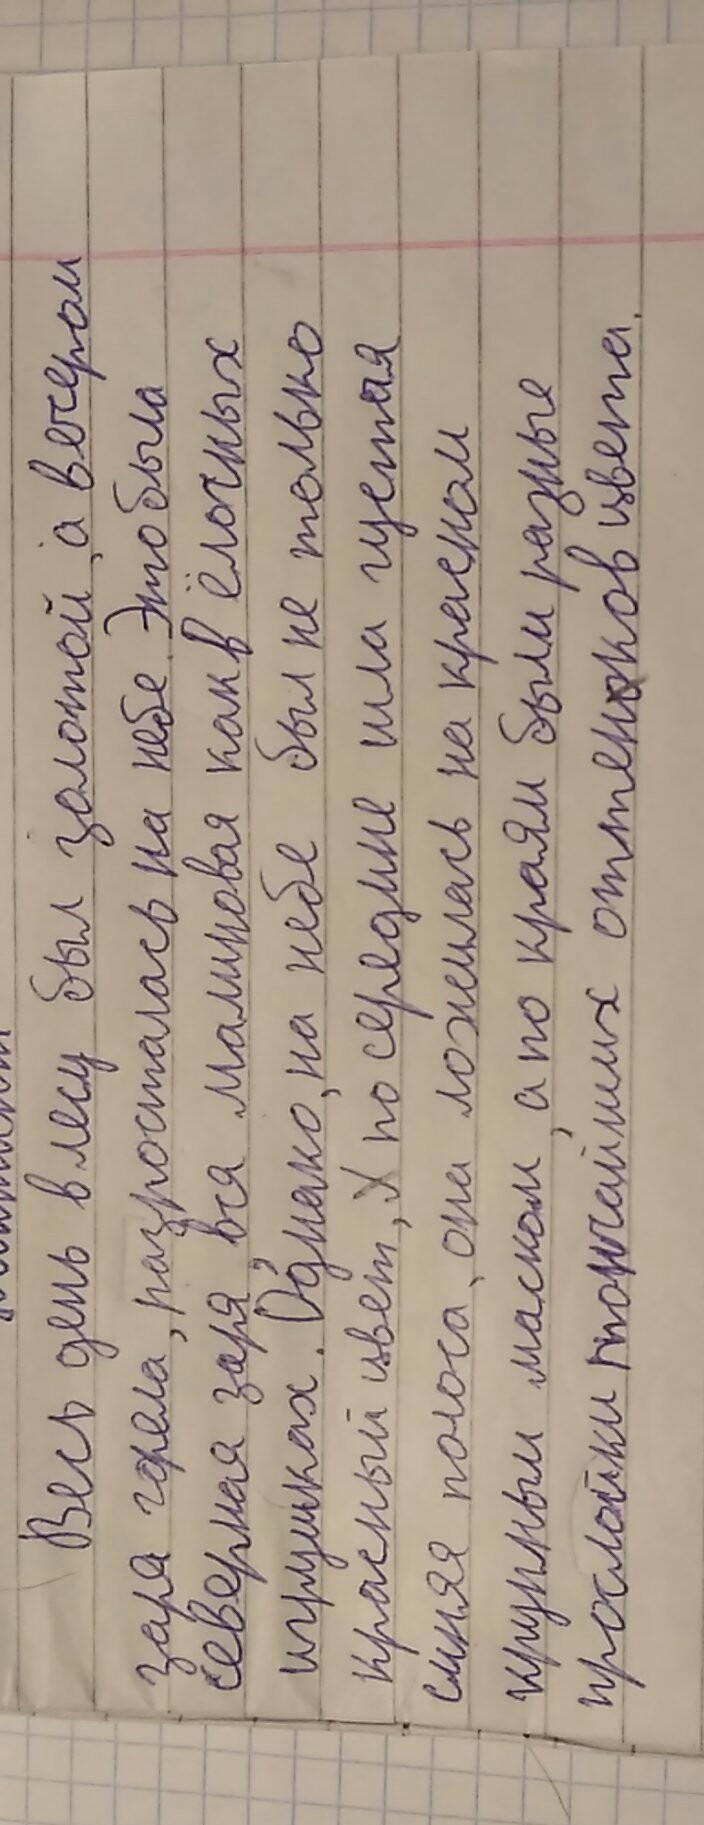 Весь день в лесу был золотой, а вечером
заря горела, разросталась на небе. Это была
северная заря, вся малиновая как в ёлочных
игрушках. Однако, на небе был не только
красный цвет, по середине шла густая
синяя полоса, она ложилась на красном
крупным маском, а по краям были разные
прослойки тончайших оттенков цвета.